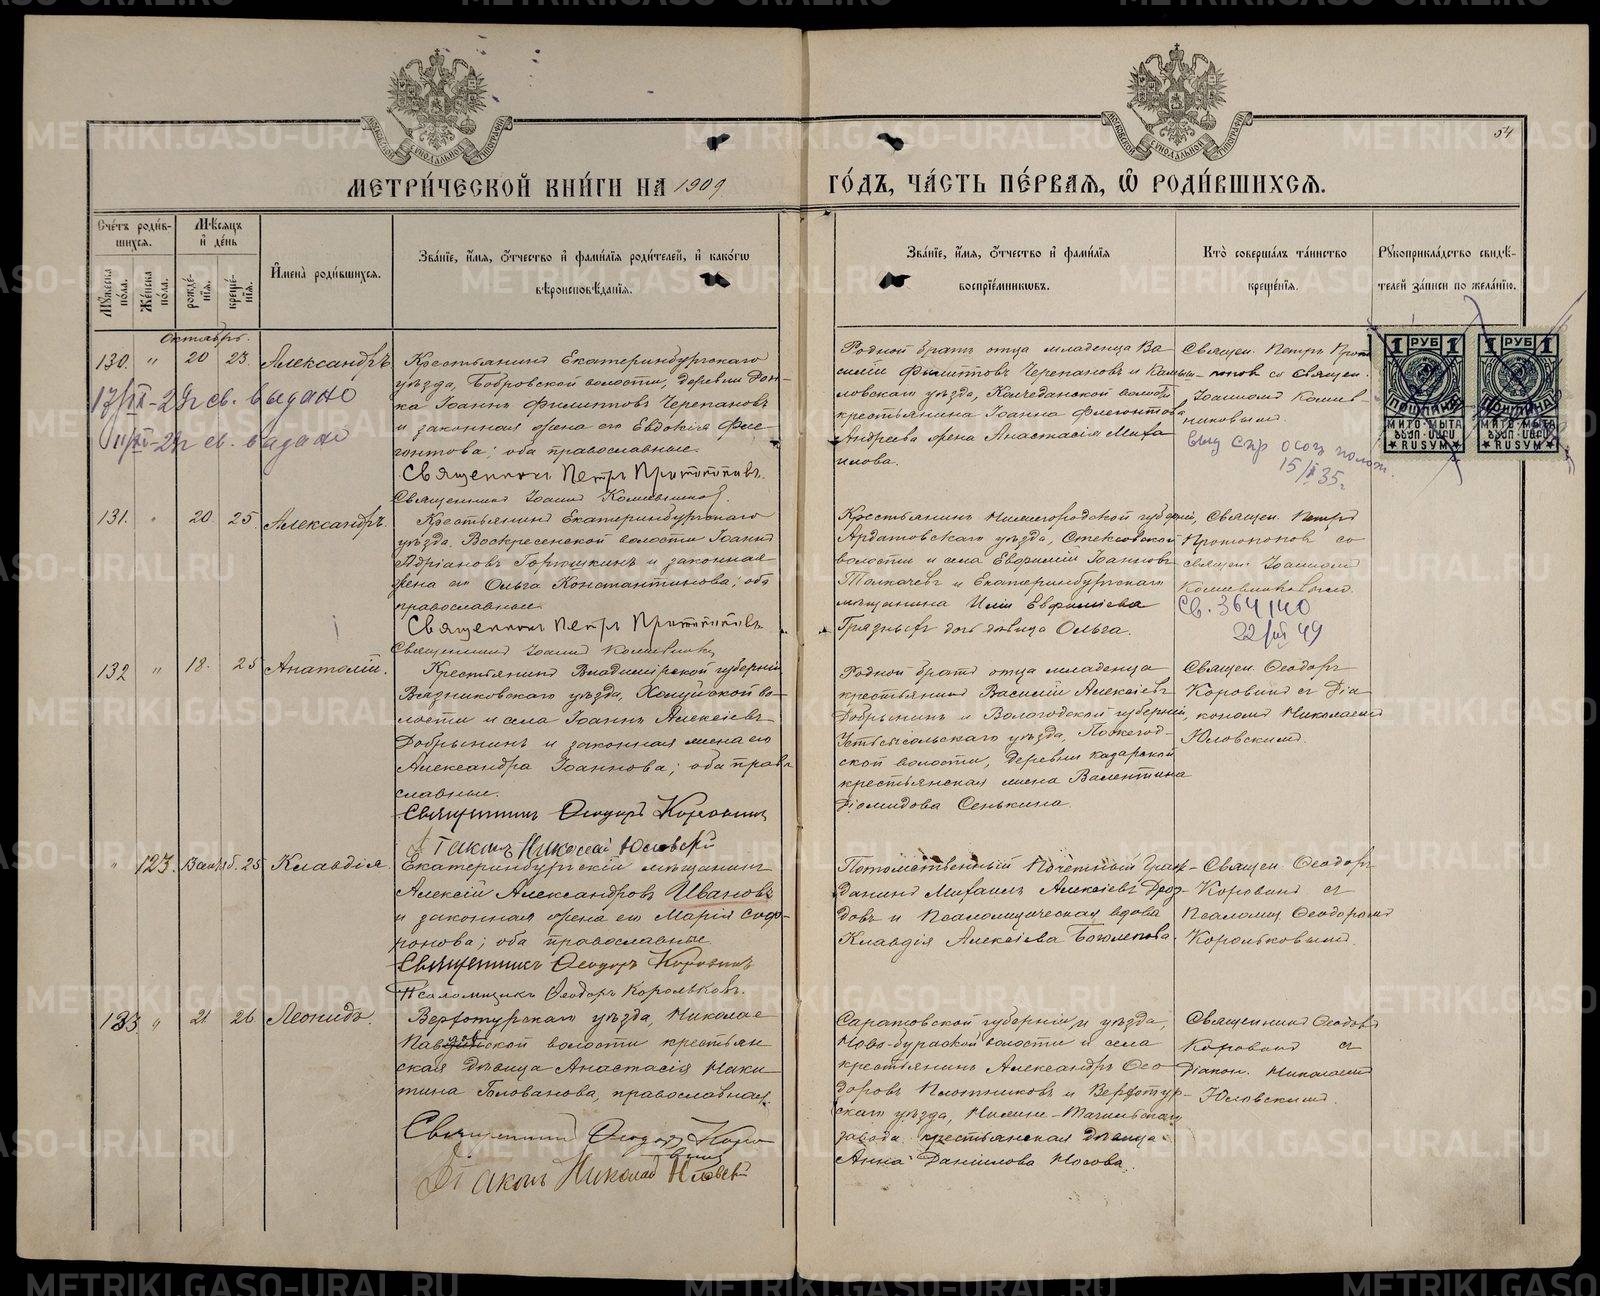 54
МЕТРИ́ЧЕСКОЙ КНИ́ГИ НА 1909 ГО́ДЪ, ЧА́СТЬ ПЕ́РВАЯ, Ѡ РОДИ́ВШИХСЯ.
Счетъ родившихся.
Мѣсяцъ и день
Имена родившихся.
Званіе, имя, отчество и фамилія родителей, и какого
вѣроисповѣданія.
Званіе, имя, отчество и фамилія
воспріемниковъ.
Кто совершалъ таинство
крещенія.
Рукоприкладство свидѣ-
телей записи по желанію.
Мужеска пола.
Женска пола.
рожденія.
крещенія.
Октябрь.
130. " 20 23 Александръ
Крестьянинъ Екатеринбургскаго
уѣзда, Бобровской волости, деревни
Іоаннъ Филипповъ Черепановъ
и законная жена его Евдокія Фле-
гонтова; оба православные.
Священникъ Петръ Протопоповъ.
Священникъ Іоаннъ
Родной братъ отца младенца Ва-
силій Филипповъ Черепановъ и Камыш-
ловскаго уѣзда, Колчеданской волости
крестьянина Іоанна Флегонтова
Андреева жена Анастасія
Священ. Петръ Прото-
поповъ со священ.
Іоанномъ
17/ св. выдано
св. выдано
15/ 35 г.
1 РУБ 1
МИТО МЫТА
RUSYM
1 РУБ 1
МИТО МЫТА
RUSYM
131. " 20 25 Александръ.
Крестьянинъ Екатеринбургскаго
уѣзда, Воскресенской волости Іоаннъ
Адріановъ Горюшкинъ и законная
жена его Ольга Константинова; оба
православные.
Священникъ Петръ Протопоповъ.
Священникъ Іоаннъ
Крестьянинъ Нижегородской губерніи,
Ардатовскаго уѣзда, Стексовской
волости и села Евфимій Іоанновъ
Толкачевъ и Екатеринбургскаго
мѣщанина Иліи Евфиміева
Грязныхъ дочь дѣвица Ольга.
Священ. Петръ
Протопоповъ со
священ. Іоанномъ
Св. 364/140
22/VII 49
132 " 18. 25 Анатолій.
Крестьянинъ Владимірской губерніи
Вязниковскаго уѣзда, Холуйской во-
лости и села Іоаннъ Алексіевъ
Добрынинъ и законная жена его
Александра Іоаннова; оба право-
славные.
Священникъ Ѳеодоръ Коровинъ
Діаконъ Николай Юловскій
Родной братъ отца младенца
крестьянинъ Василій Алексіевъ
Добрынинъ и Вологодской губерніи,
Устьсысольскаго уѣзда,
ской волости, деревни
крестьянская жена Валентина
Діомидова Сенькина.
Священ. Ѳеодоръ
Коровинъ съ діа-
кономъ Николаемъ
Юловскимъ.
" 123. 25 Клавдія.
Екатеринбургскій мѣщанинъ
Алексій Александровъ Ивановъ
и законная жена его Марія Соф-
ронова; оба православные.
Священникъ Ѳеодоръ Коровинъ
Псаломщикъ Ѳеодоръ Корольковъ.
Потомственный Почетный граж-
данинъ Михаилъ Алексіевъ Дроз-
довъ и Псаломщическая вдова
Клавдія Алексіева
Священ. Ѳеодоръ
Коровинъ съ
Псаломщ. Ѳеодоромъ
Корольковымъ.
133 " 21 26 Леонидъ.
Верхотурскаго уѣзда, Николае-
Павдинской волости крестьян-
ская дѣвица Анастасія Ники-
тина Голованова, православная.
Священникъ Ѳеодоръ Коро-
винъ
Діаконъ Николай Юловскій
Саратовской губерніи и уѣзда,
Ново-бурасской волости и села
крестьянинъ Александръ Ѳео-
доровъ Плотниковъ и Верхотур-
скаго уѣзда, Нижне-Тагильскаго
завода крестьянская дѣвица
Анна Даніилова Носова.
Священникъ Ѳеодоръ
Коровинъ съ
діакон. Николаемъ
Юловскимъ.
METRIKI.GASO-URAL.RU